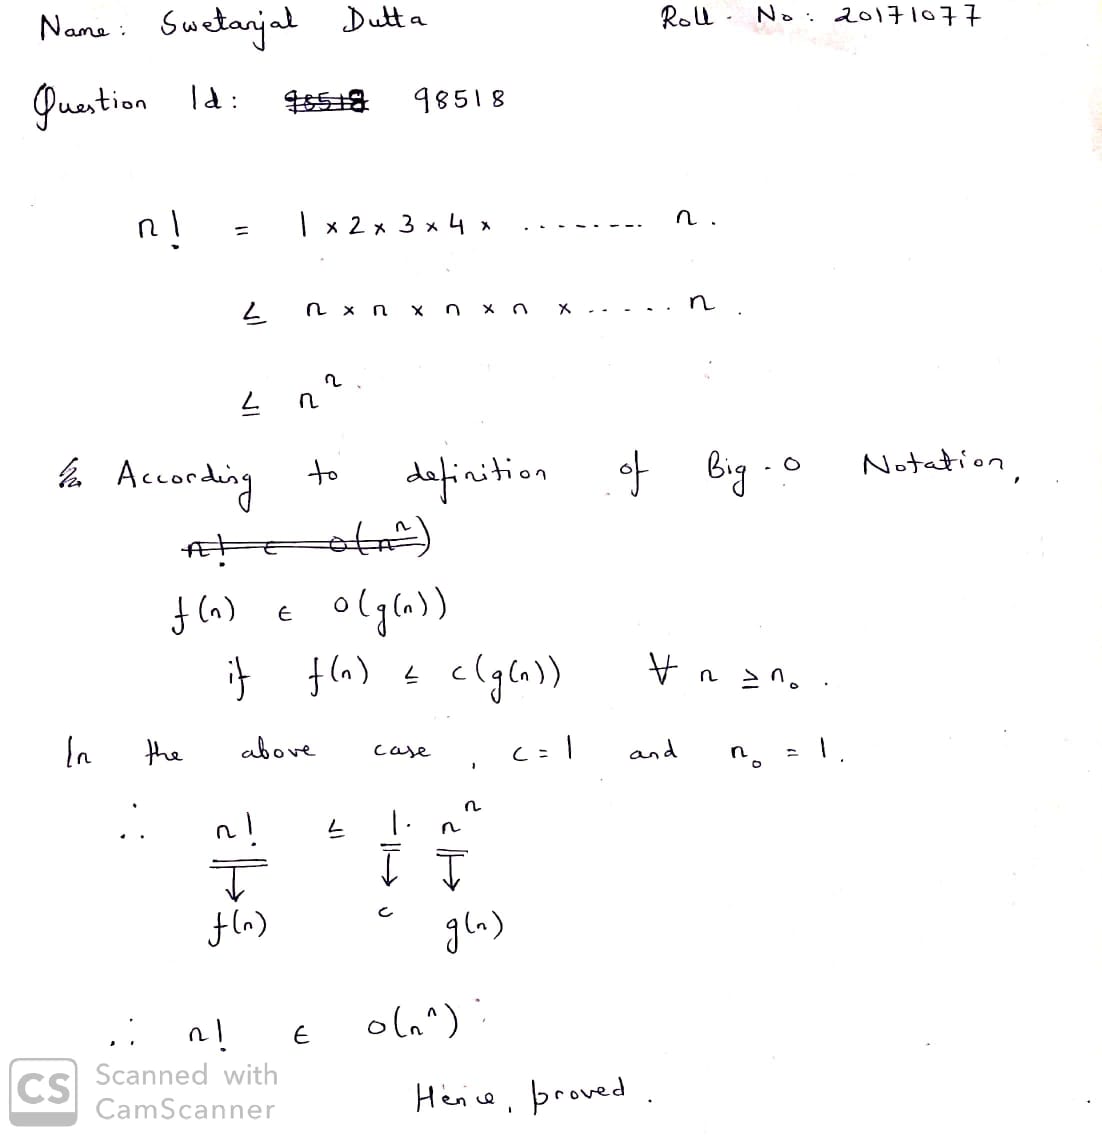 Name: Swetanjal Dutta Roll. No: 20171077
Question Id: 98518 98518
n! = 1 x 2 x 3 x 4 x ........ n.
≤ n x n x n x n x ...... n.
≤ nⁿ.
According to definition of Big-O Notation,
n! ∈ O(nⁿ)
f(n) ∈ O(g(n))
if f(n) ≤ c(g(n)) ∀ n ≥ n₀.
In the above case, c = 1 and n₀ = 1.
∴ n! ≤ 1. nⁿ
f(n) c g(n)
∴ n! ∈ O(nⁿ).
CS Scanned with
CamScanner
Hence, proved.